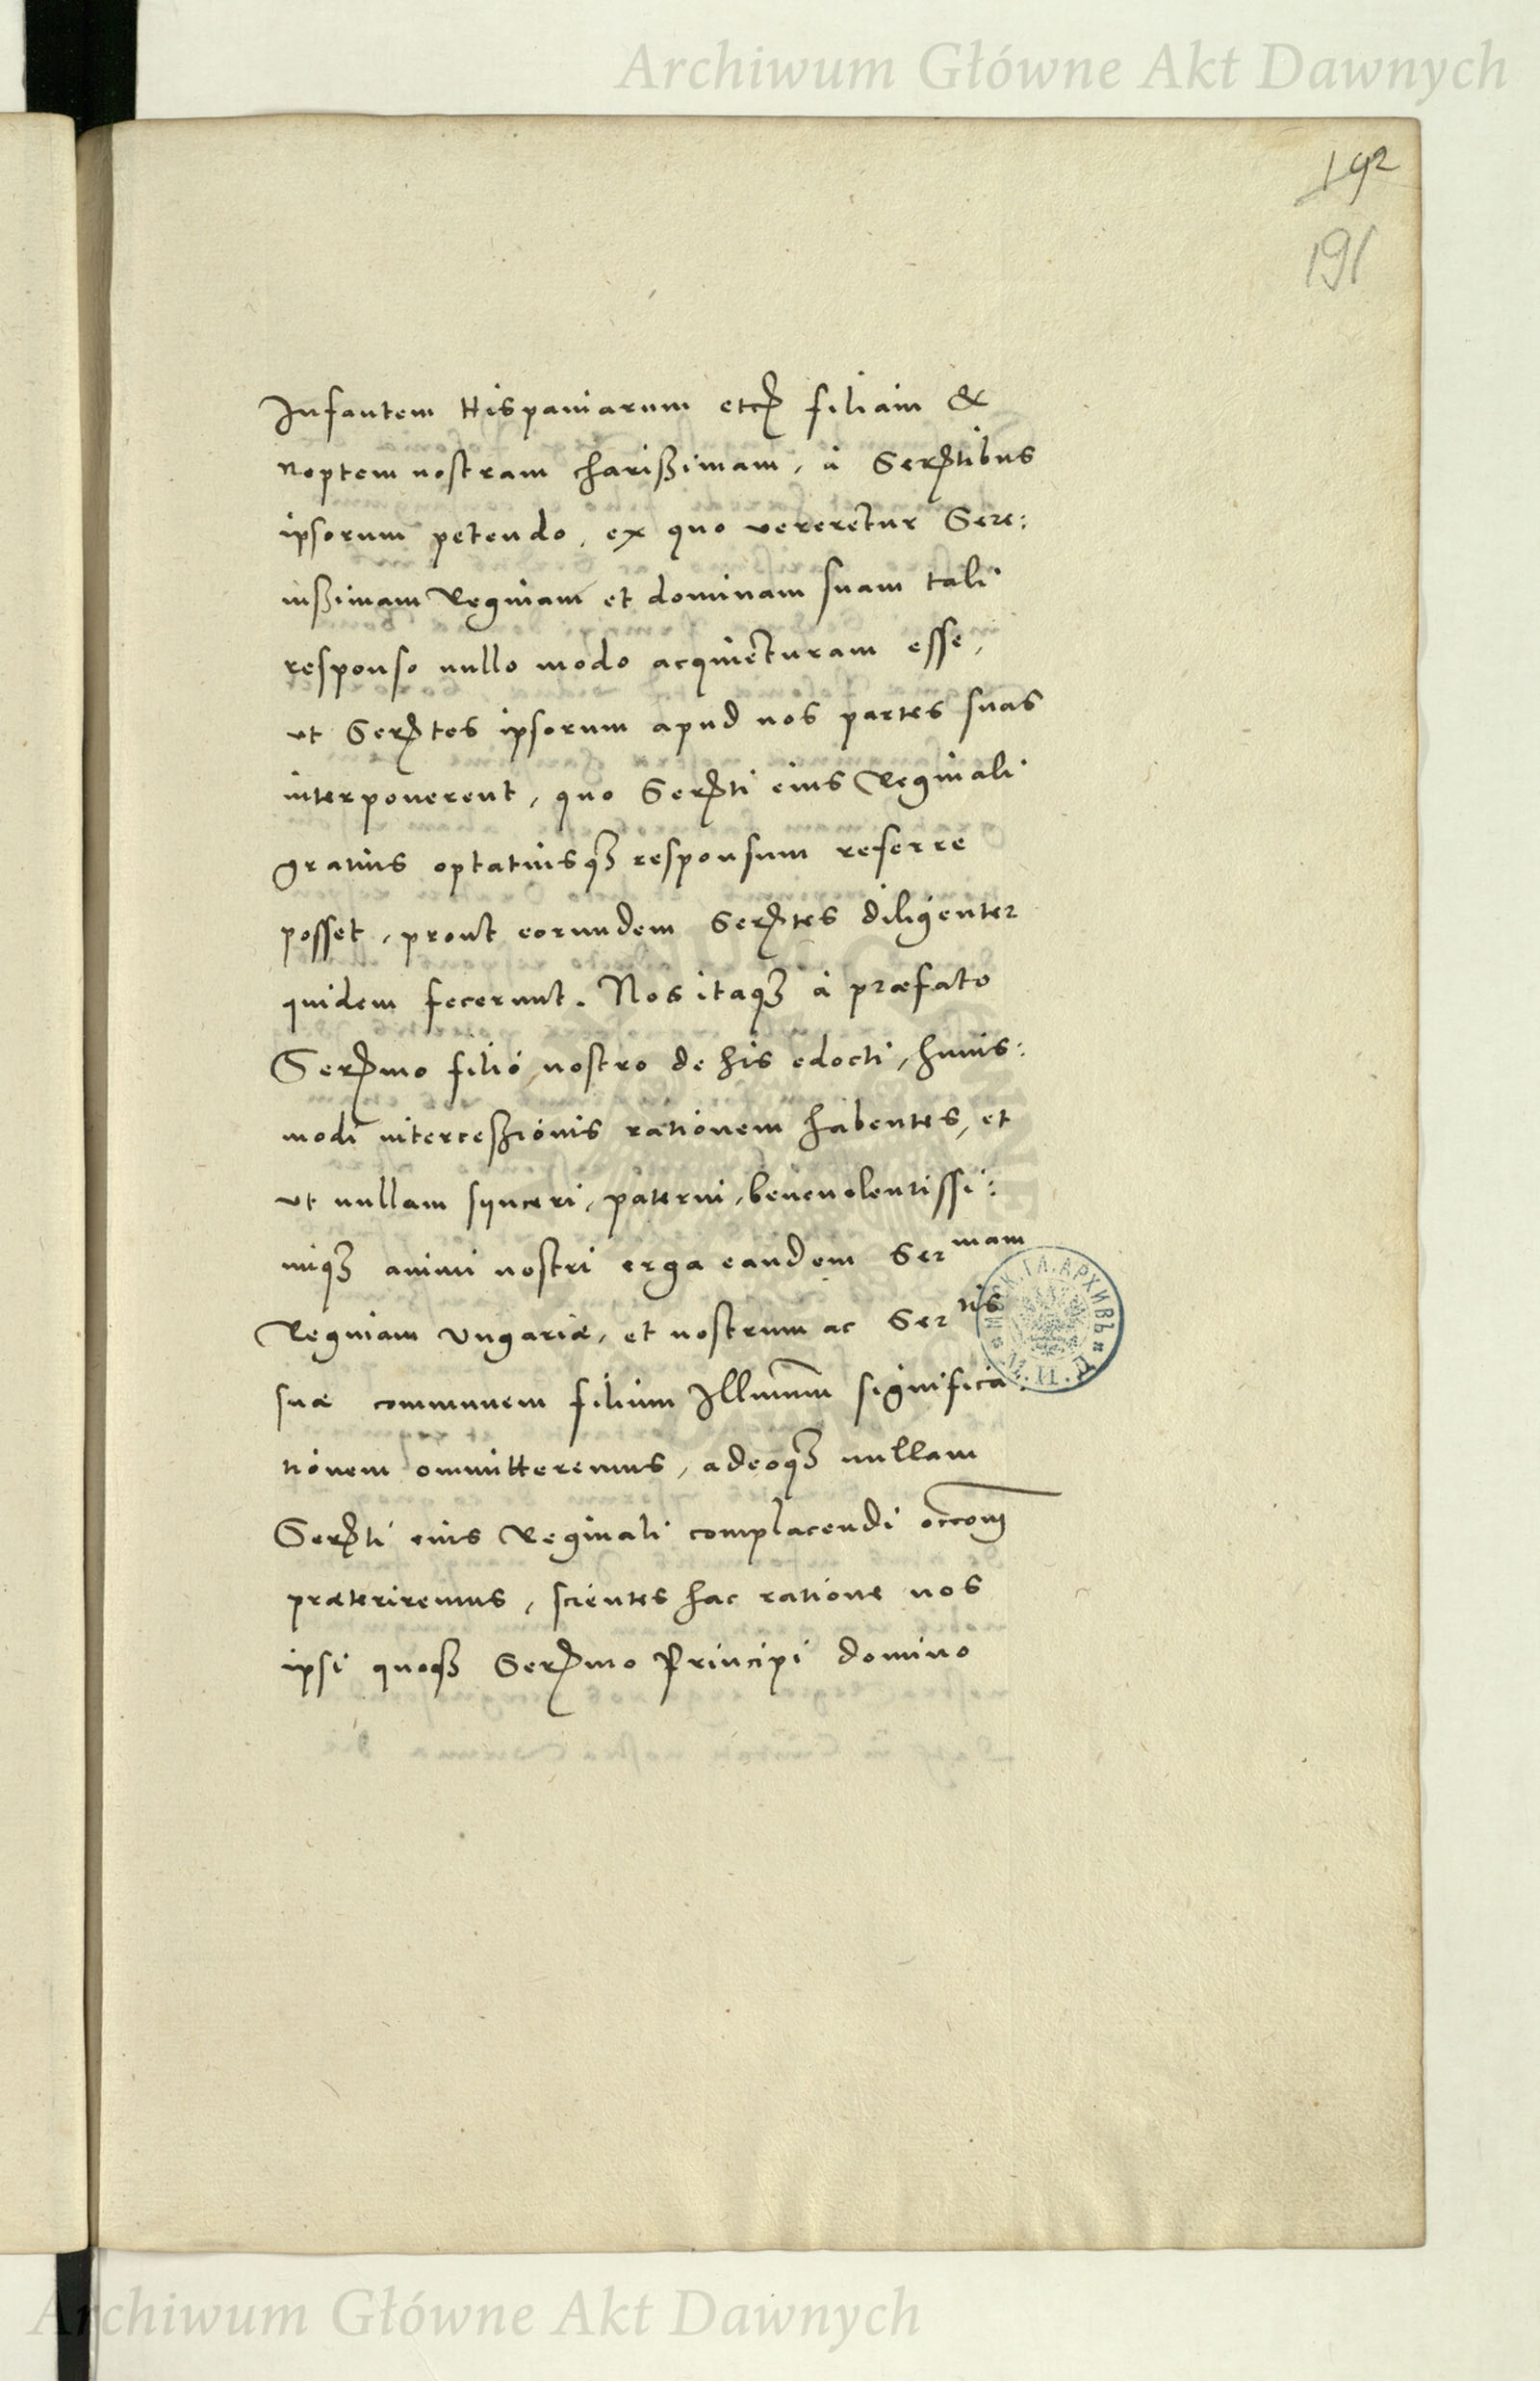 Archiwum Główne Akt Dawnych
192
191
Infantem Hispaniarum etc. filiam &
noptem nostram charißimam, à Serptibus
ipsorum petendo, ex quo vereretur Sere:
nißimam Reginam et dominam suam tali
responso nullo modo acquieturam esse,
ut Sertes ipsorum apud nos partes suas
interponerent, quo Serti eius Reginali
gratius optatiusq3 responsum referre
posset, prout eorundem Sertes diligenter
quidem fecerunt. Nos itaq3 à præfato
Sermo filio nostro de his edocti, huius:
modi interceßionis rationem habentes, et
ut nullam synceri, paterni, benevolentissi:
miq3 animi nostri erga eandem Sermam
Reginam Ungariæ, et nostrum ac Sertis
suæ communem filium Illmum significa
tionem omitteremus, adeoq3 nullam
Serti eius Reginali complacendi occoem
præteriremus, scientes hac ratione nos
ipsi quoq3 Sermo Principi domino
МОСК. ГЛ. АРХИВЪ
Archiwum Główne Akt Dawnych